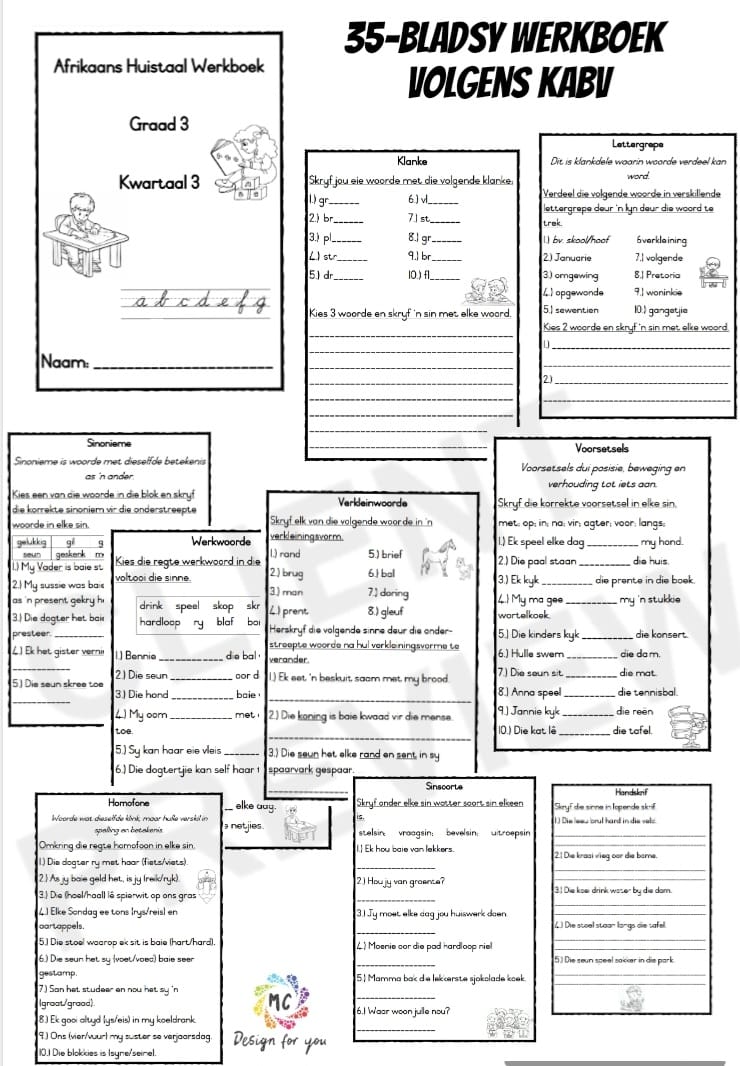 35-BLADSY WERKBOEK
VOLGENS KABV
Afrikaans Huistaal Werkboek
Graad 3
Kwartaal 3
a b c d e f g
Naam:
Klanke
Skryf jou eie woorde met die volgende klanke:
1.) gr______ 6.) vl______
2.) br______ 7.) st______
3.) pl______ 8.) gr______
4.) str______ 9.) br______
5.) dr______ 10.) fl______
Kies 3 woorde en skryf 'n sin met elke woord.
Lettergrepe
Dit is klankdele waarin woorde verdeel kan
word.
Verdeel die volgende woorde in verskillende
lettergrepe deur 'n lyn deur die woord te
trek.
1.) bv. skool/hoof 6verkleining
2.) Januarie 7.) volgende
3.) omgewing 8.) Pretoria
4.) opgewonde 9.) woninkie
5.) sewentien 10.) gangetjie
Kies 2 woorde en skryf 'n sin met elke woord.
1.)
2.)
Sinonieme
Sinonieme is woorde met dieselfde betekenis
as 'n ander.
Kies een van die woorde in die blok en skryf
die korrekte sinoniem vir die onderstreepte
woorde in elke sin.
gelukkig gil g
seun geskenk m
1.) My Vader is baie st
2.) My sussie was baie
as 'n present gekry h
3.) Die dogter het baie
presteer.
4.) Ek het gister verni
5.) Die seun skree toe
Werkwoorde
Kies die regte werkwoord in die
voltooi die sinne.
drink speel skop skr
hardloop ry blaf
1.) Bennie ________ die bal
2.) Die seun ________ oor d
3.) Die hond ________ baie
4.) My oom ________ met
toe.
5.) Sy kan haar eie vleis ______
6.) Die dogtertjie kan self haar
elke dag.
netjies.
Verkleinwoorde
Skryf elk van die volgende woorde in 'n
verkleiningsvorm.
1.) rand 5.) brief
2.) brug 6.) bal
3.) man 7.) doring
4.) prent 8.) gleuf
Herskryf die volgende sinne deur die onder-
streepte woorde na hul verkleiningsvorme te
verander.
1.) Ek eet 'n beskuit saam met my brood.
2.) Die koning is baie kwaad vir die mense.
3.) Die seun het elke rand en sent in sy
spaarvark gespaar.
Voorsetsels
Voorsetsels dui posisie, beweging en
verhouding tot iets aan.
Skryf die korrekte voorsetsel in elke sin.
met; op; in; na; vir; agter; voor; langs;
1.) Ek speel elke dag ________ my hond.
2.) Die paal staan ________ die huis.
3.) Ek kyk ________ die prente in die boek.
4.) My ma gee ________ my 'n stukkie
wortelkoek.
5.) Die kinders kyk ________ die konsert.
6.) Hulle swem ________ die dam.
7.) Die seun sit ________ die mat.
8.) Anna speel ________ die tennisbal.
9.) Jannie kyk ________ die reën
10.) Die kat lê ________ die tafel.
Homofone
Woorde wat dieselfde klink, maar hulle verskil in
spelling en betekenis.
Omkring die regte homofoon in elke sin.
1.) Die dogter ry met haar (fiets/viets).
2.) As jy baie geld het, is jy (reik/ryk).
3.) Die (hael/haal) lê spierwit op ons gras
4.) Elke Sondag ee tons (rys/reis) en
aartappels.
5.) Die stoel waarop ek sit is baie (hart/hard).
6.) Die seun het sy (voet/voed) baie seer
gestamp.
7.) San het studeer en nou het sy 'n
(graat/graad).
8.) Ek gooi altyd (ys/eis) in my koeldrank.
9.) Ons (vier/vuur) my suster se verjaarsdag.
10.) Die blokkies is (syne/seine).
Sinsoorte
Skryf onder elke sin watter soort sin elkeen
is.
stelsin; vraagsin; bevelsin; uitroepsin
1.) Ek hou baie van lekkers.
2.) Hou jy van groente?
3.) Jy moet elke dag jou huiswerk doen.
4.) Moenie oor die pad hardloop nie!
5.) Mamma bak die lekkerste sjokolade koek.
6.) Waar woon julle nou?
Handskrif
Skryf die sinne in lopende skrif.
1.) Die leeu brul hard in die veld.
2.) Die kraai vlieg oor die bome.
3.) Die koei drink water by die dam.
4.) Die stoel staan langs die tafel.
5.) Die seun speel sokker in die park.
MC
Design for you
CLIENT
PREVIEW